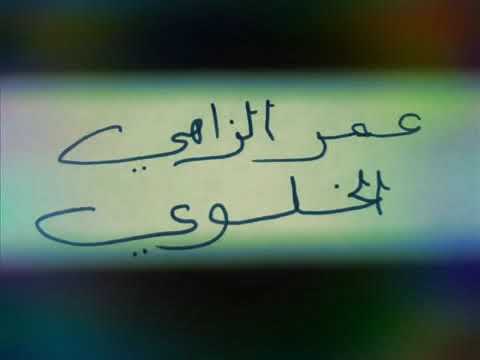 عمر الزاهي
الخلوي